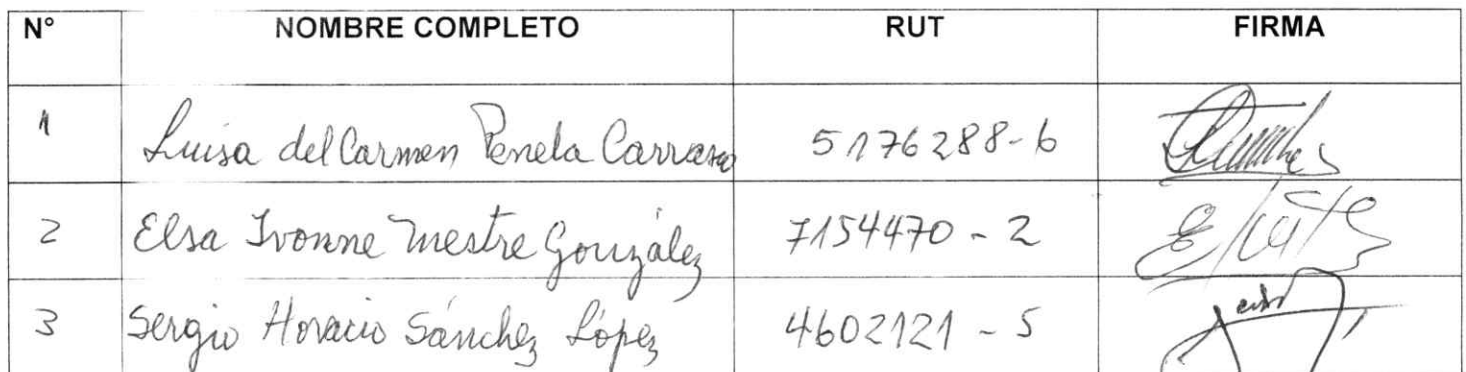 N° NOMBRE COMPLETO RUT FIRMA
1 Luisa del Carmen Penela Carrasco 5176288-6
2 Elsa Ivonne Mestre González 7154470-2
3 Sergio Horacio Sánchez López 4602121-5